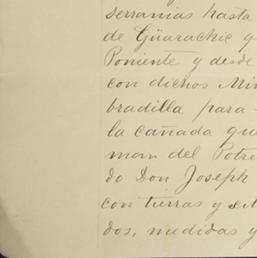 serranias hasta
de Güarachic q
Poniente y desde
con dichos Min
bradilla para
la cañada que
mom del Potre
do Don Joseph
con tierras y
dos, medidas y